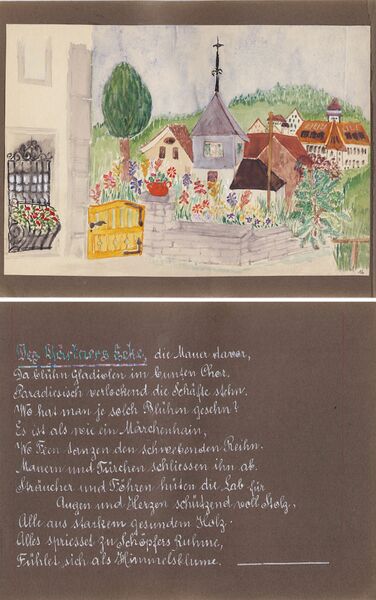 Des Gärtners Ecke, die Mauer davor,
Da blühn Gladiolen im bunten Chor.
Paradiesisch verlockend die Schäfte stehn.
Wo hat man je solch Blühen gesehn?
Es ist als wie ein Märchenhain,
Wo Feen tanzen den schwebenden Reihn.
Mauern und Türchen schliessen ihn ab.
Sträucher und Föhren hüten die Lab für
Augen und Herzen schützend voll Stolz,
Alle aus starkem gesundem Holz.
Alles spriesset zu Schöpfers Ruhme,
Fühlet sich als Himmelsblume.